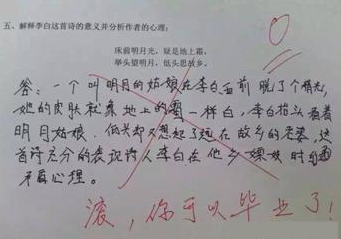 五、解释李白这首诗的意义并分析作者的心理：
床前明月光，疑是地上霜，
举头望明月，低头思故乡。
答：一个叫明月的姑娘在李白面前脱了个精光，
她的皮肤就象地上的霜一样白，李白抬头看着
明月姑娘．低头却又想起了远在故乡的老婆，这
首诗充分的表现诗人李白在他乡嫖妓时的
矛盾心理。
滚，你可以毕业了！